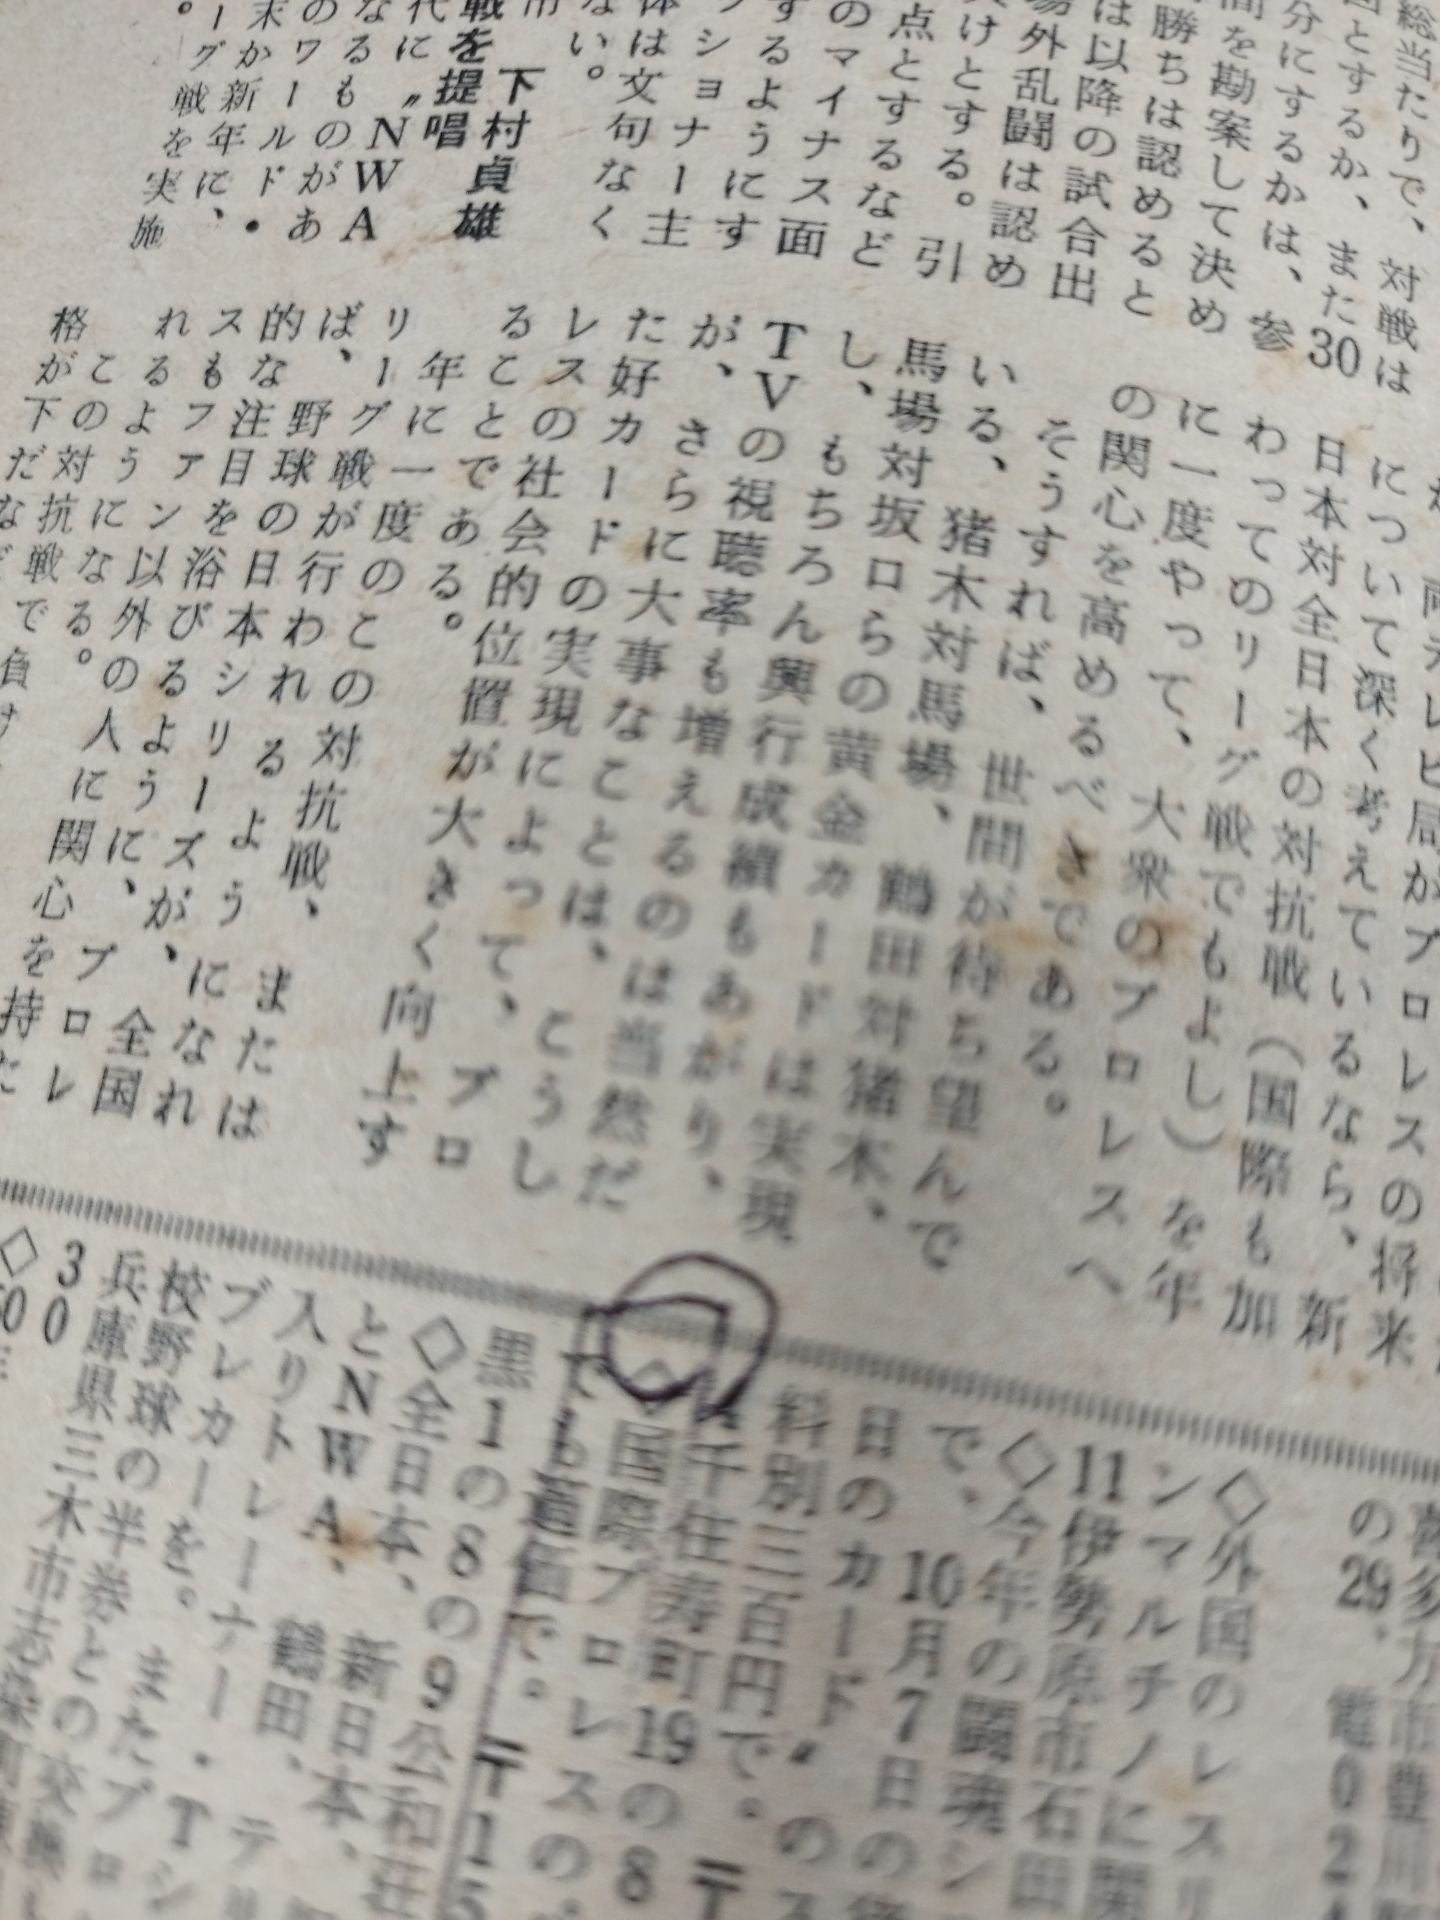 総当たりで、対戦は
回とするか、また30
分にするかは、参
間を勘案して決め
勝ちは認めると
は以降の試合出
場外乱闘は認め
負けとする。引
点とするなど
のマイナス面
するようにす
ッショナー主
体は文句なく
ない。
下村貞雄
戦を提唱
代に〝NWA
なるものがあ
のワールド・
末か新年に、
ーグ戦を実施
。
両テレビ局がプロレスの将来
について深く考えているなら、新
日本対全日本の対抗戦（国際も加
わってのリーグ戦でもよし）を年
に一度やって、大衆のプロレスへ
の関心を高めるべきである。
そうすれば、世間が待ち望んで
いる、猪木対馬場、鶴田対猪木、
馬場対坂口らの黄金カードは実現
し、もちろん興行成績もあがり、
TVの視聴率も増えるのは当然だ
が、さらに大事なことは、こうし
た好カードの実現によって、プロ
レスの社会的位置が大きく向上す
ることである。
年に一度のこの対抗戦、または
リーグ戦が行われるようになれ
ば、野球の日本シリーズが、全国
的な注目を浴びるように、プロレ
スもファン以外の人に関心を持た
れるようになる。
この対抗戦で負け
格が下だなど
喜多方市豊川町
の29、電024
◇外国のレスリ
ンマルチノに関
11伊勢原市石田
◇今年の闘魂シ
で、10月7日の
日のカード〟の
料別三百円で。〒
千住寿町19の8
◇国際プロレスの
でも適価で。〒15
黒1の8の9公和荘
◇全日本、新日本、
とNWA、鶴田、テリ
入りトレーナー・Tシ
ブレカーを。またプロ
校野球の半券との交換
兵庫県三木市志染町
30
◇50年